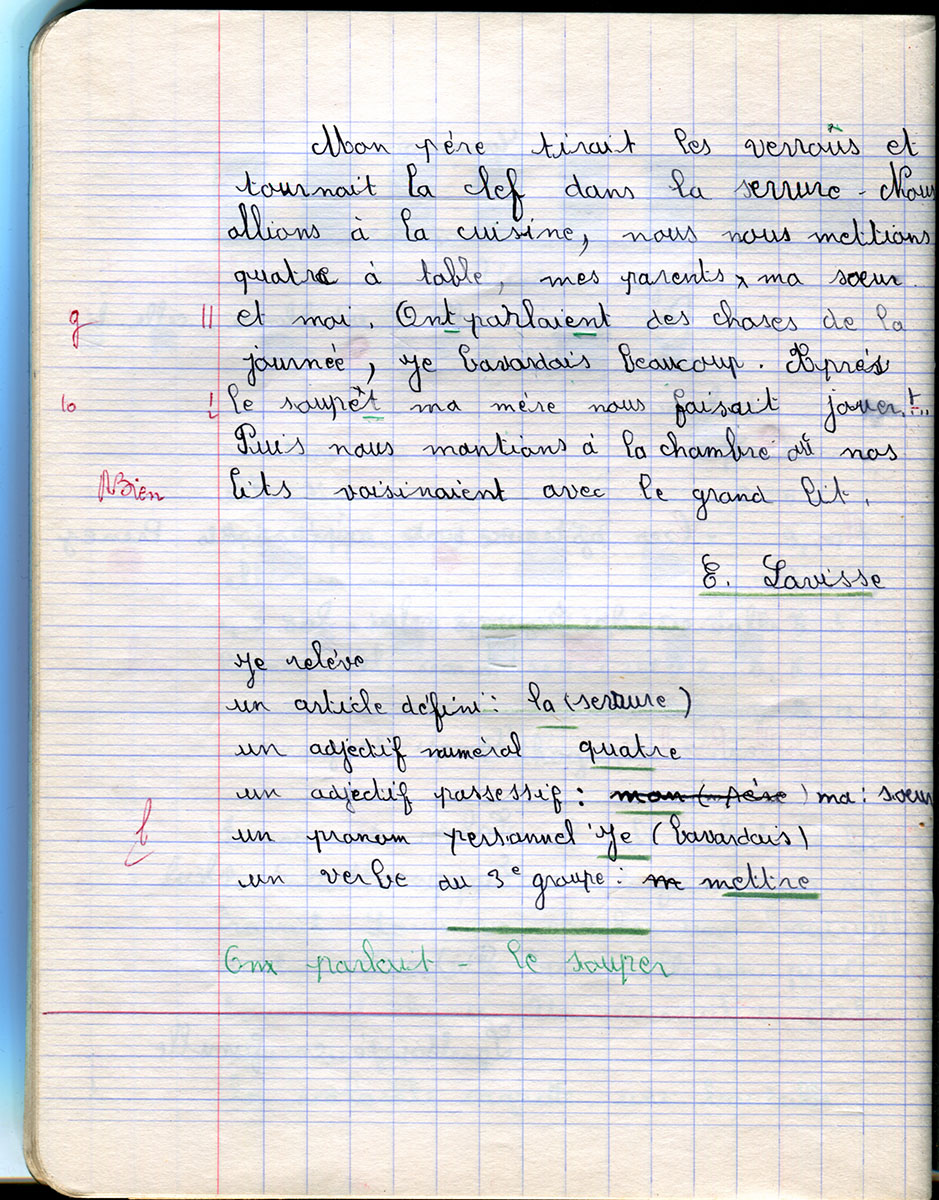 Mon père tirait les verroûs et
tournait la clef dans la serrure. Nous
allions à la cuisine, nous nous mettions
quatre à table, mes parents, ma sœur
g || et moi. Ont parlaient des choses de la
journée, je bavardais beaucoup. Après
10 le soupêt ma mère nous faisait jouer...
Puis nous montions à la chambre où nos
Bien lits voisinaient avec le grand lit.
E. Lavisse
Je relève
un article défini : la (serrure)
un adjectif numéral quatre
un adjectif possessif : mon ( père ) ma : sœur
un pronom personnel je (bavardais)
un verbe du 3e groupe : m mettre
On parlait - le souper